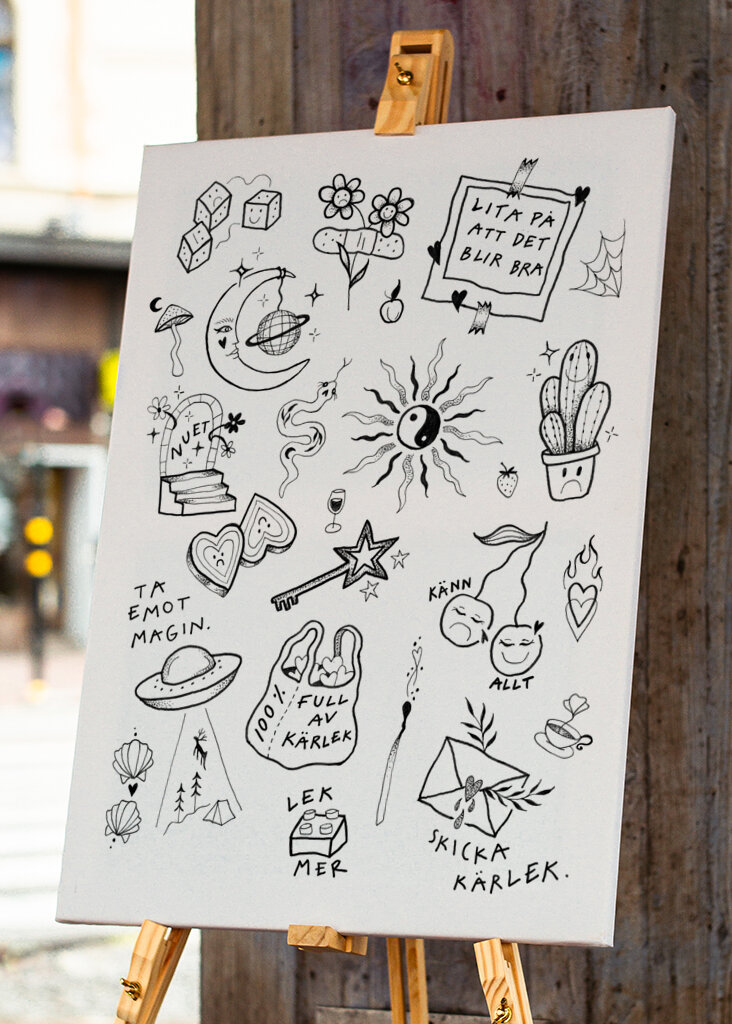 LITA PÅ
ATT DET
BLIR BRA
NUET
TA
EMOT
MAGIN.
KÄNN
ALLT
100%
FULL
AV
KÄRLEK
LEK
MER
SKICKA
KÄRLEK.